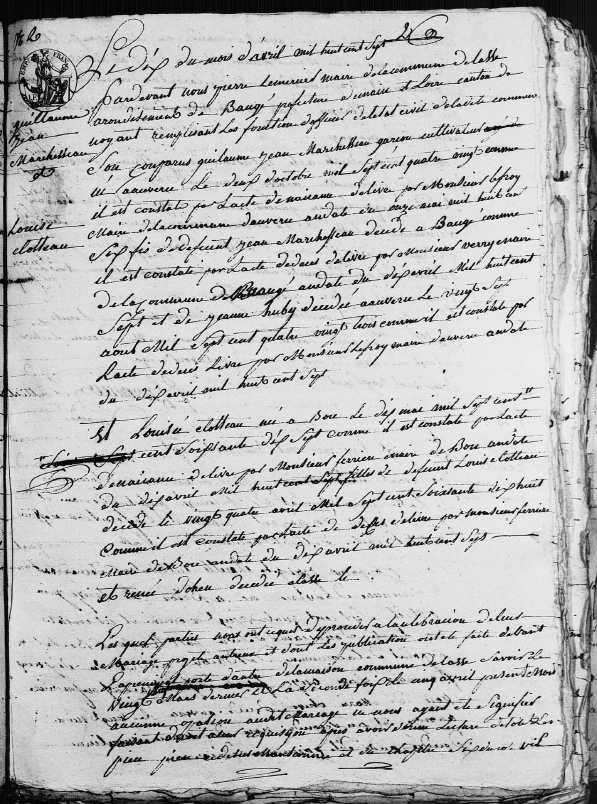 N° 2
2
guillaume
jean
Marchesseau
et
Louise
clotteau
Le dix du mois d'avril mil huit cent sept
Pardevant nous pierre lemercier maire de la commune de lasse
arondisement de Baugé prefecture de maine et Loire canton de
noyant remplissant Les fonction d'officier de letat civil de la dite commune
Son Comparus guilaume jean Marchesseau garcon cultivateur
né a auverse Le deux d'octobre mil sept cent quatre vingt comme
il est constate par Lacte de naisance delivré par Monsieur Lefroy
Maire de la commune dauverse en date du onze mai mil huit cent
Six fis de defeunt jean Marchesseau decede a Baugé comme
il est constate par Lacte de deces delivré par Monsieur verrye maire
de la Commune de Baugé en date du dix avril Mil huit cent
Sept et de jeanne huby decedee a auverse Le vingt sept
aout Mil sept cent quatre vingt trois comme il est constate par
Lacte de deces Livré par Monsieur Lefroy maire dauverse en date
du dix avril mil huit cent sept
Et Louise clotteau né a Boce Le dix mai mil Sept cent
Sept cent Soissante dix Sept comme il est constate par Lacte
de naisance delivré par Monsieur ferrien maire de Boce en date
du dix avril Mil huit cent Sept filles de defeunt Louis clotteau
decede le vingt quatre avril Mil Sept cent Soixante dix huit
Comme il est constate par Lacte de deces delivré par monsieur ferrien
Maire de Boce en date du dix avril mil huit cent sept
et renée decedee a lasse le
Les quels parties nous ont requis de proceder a la celebracion de leur
Mariage projet entreux et dont les publication ont été faite devant
La principal porte de la maison commune de lasse Savoir Le
vingt Mars dernier et La Seconde fois Le cinq avril present Mois
aucune oposition audit Mariage ne nous ayant été Signifiée
faisant droit a leur requisition apres avoir donné Lecture de toute Les